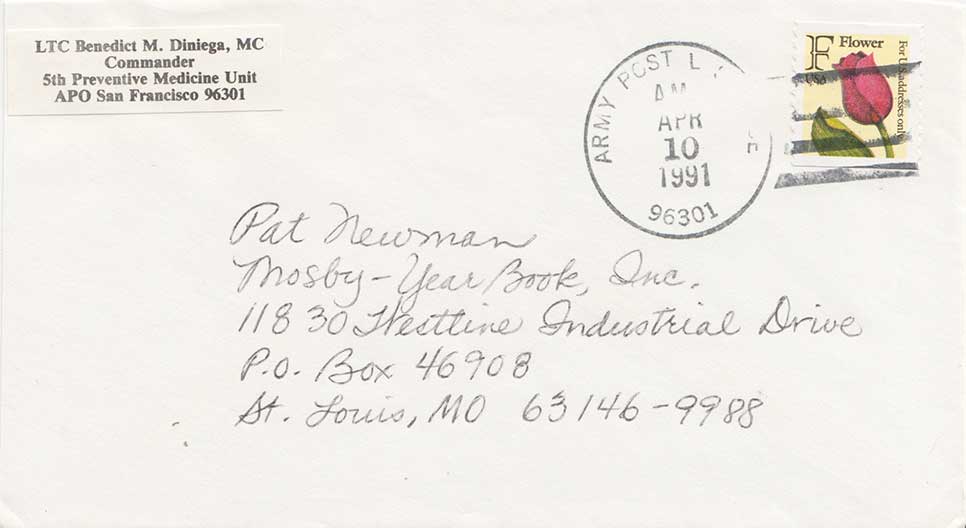 LTC Benedict M. Diniega, MC
Commander
5th Preventive Medicine Unit
APO San Francisco 96301
ARMY POST
AM
APR
10
1991
96301
F Flower
USA
For U.S. addresses only
Pat Newman
Mosby-Year Book, Inc.
11830 Westline Industrial Drive
P.O. Box 46908
St. Louis, MO 63146-9988